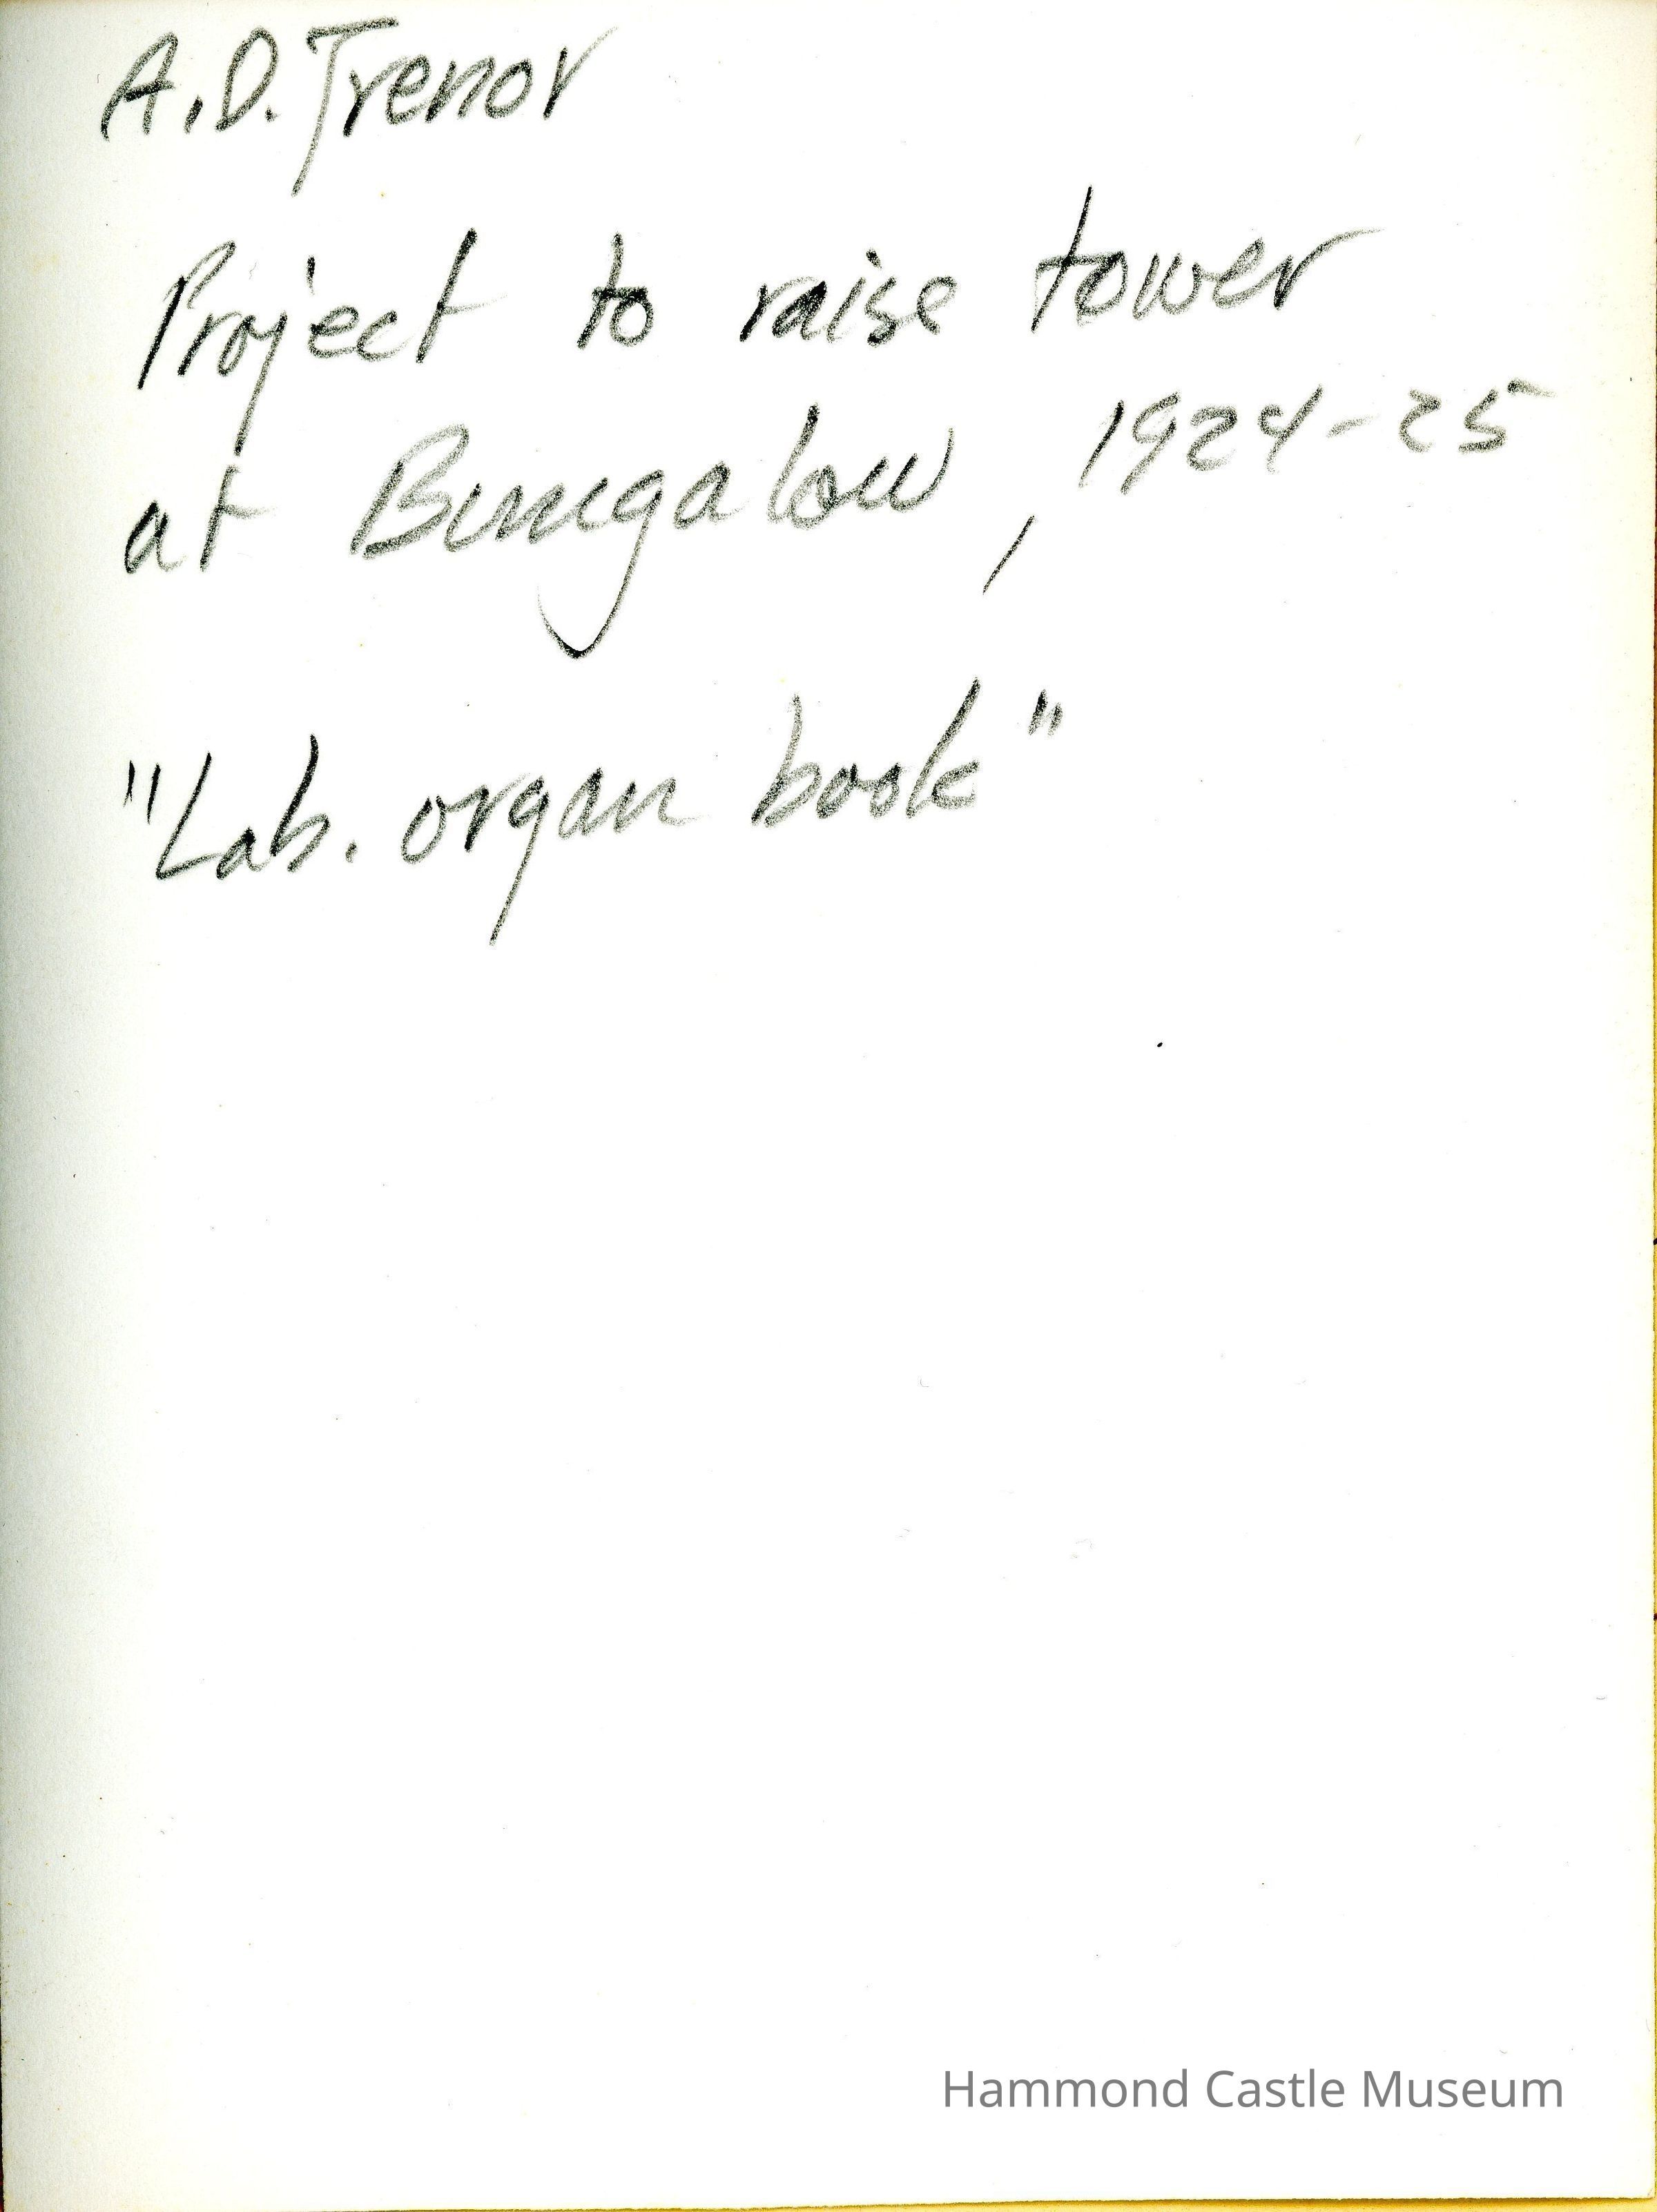 A.D. Trenor
Project to raise tower
at Bungalow, 1924-25
"Lab. organ book"
Hammond Castle Museum